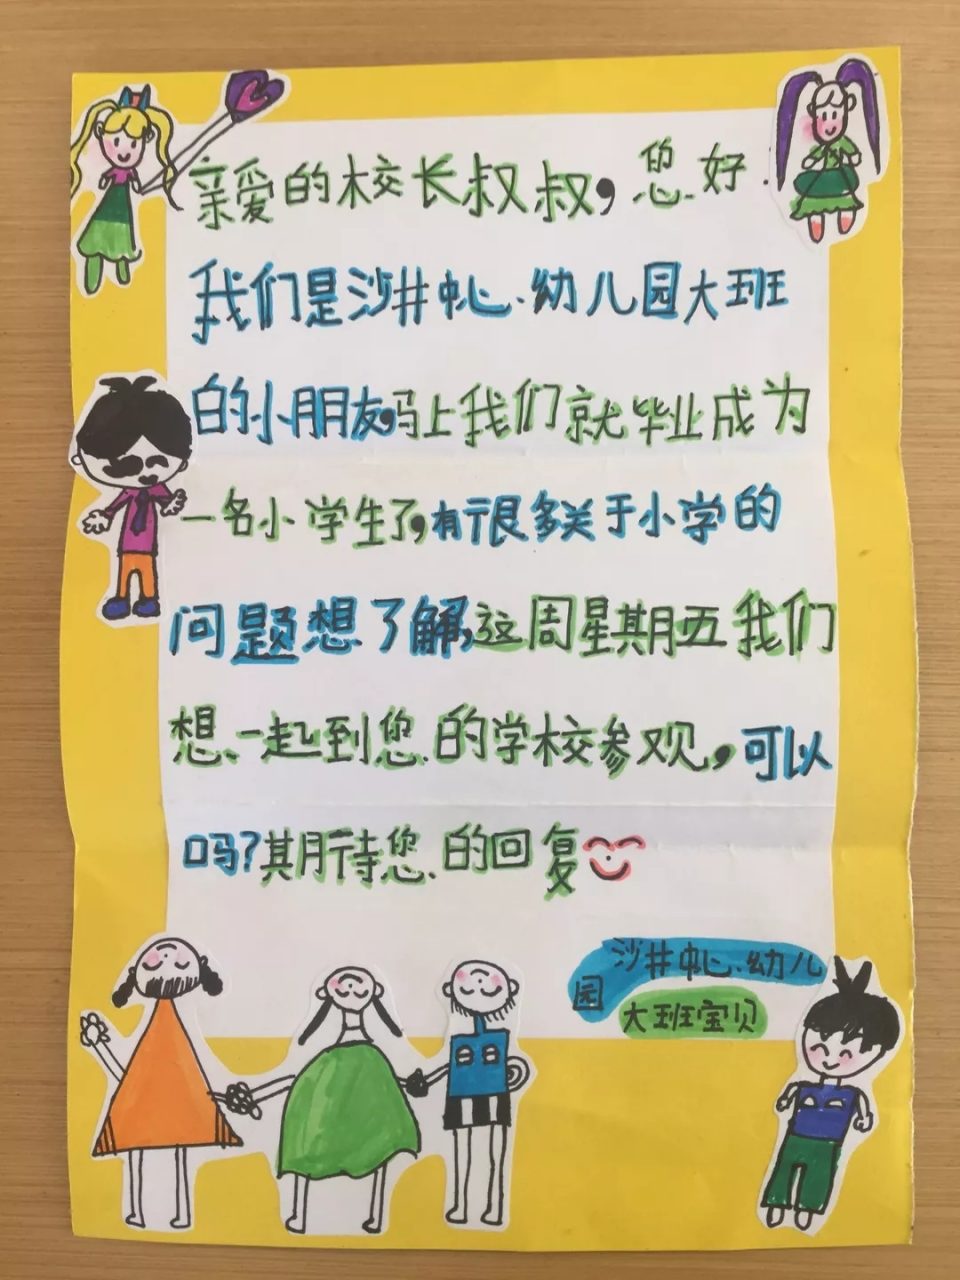 亲爱的校长叔叔，您好.
我们是沙井中心幼儿园大班
的小朋友，马上我们就毕业成为
一名小学生了，有很多关于小学的
问题想了解，这周星期五我们
想一起到您的学校参观，可以
吗？期待您的回复
沙井中心幼儿
园
大班宝贝